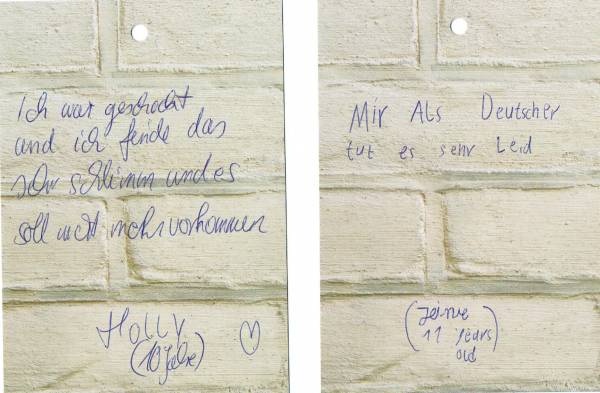 Ich war geschockt
und ich finde das
sehr schlimm und es
soll nicht mehr vorkommen
Holly
(10 Jahre)
Mir Als Deutscher
tut es sehr Leid
11 years
old)